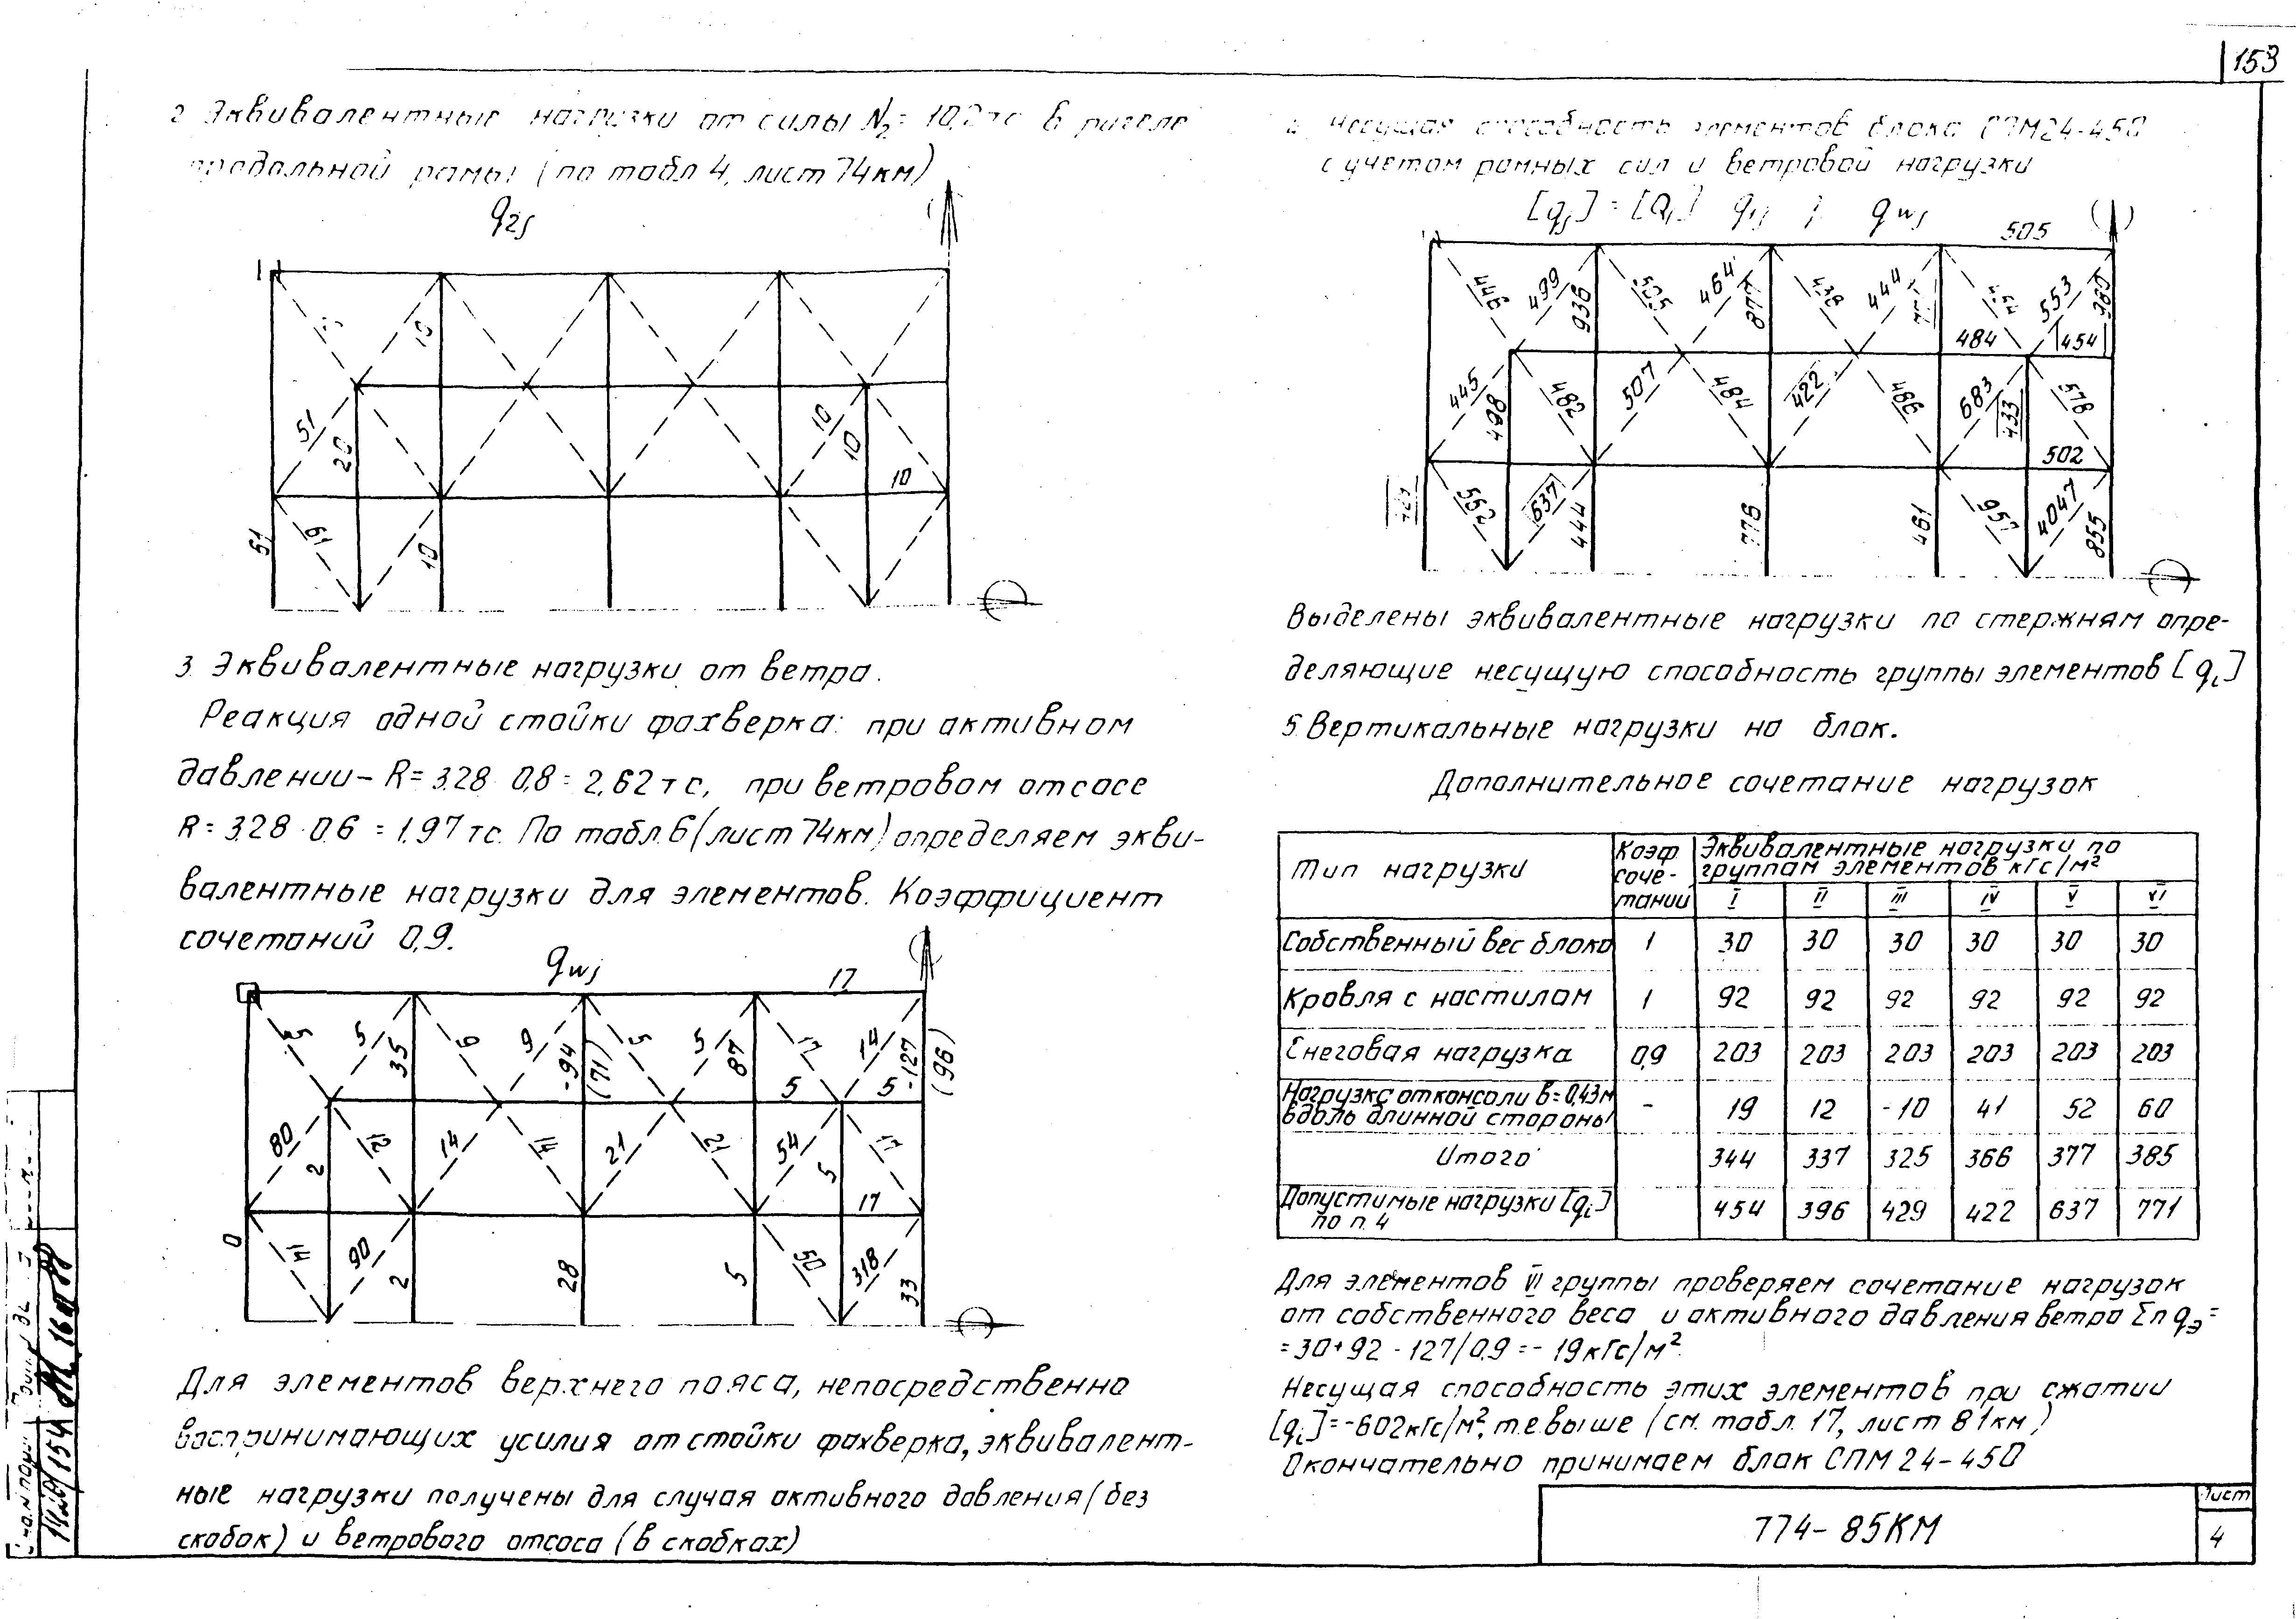 153
2 Эквивалентные нагрузки от силы N₂= 10,2 тс в ригеле
продольной рамы (по табл 4, лист 74км)
q₂ⱼ
10
51
20
10
10
10
51
61
10
3. Эквивалентные нагрузки от ветра.
Реакция одной стойки фахверка: при активном
давлении – R= 3.28 · 0,8 = 2,62 тс, при ветровом отсосе
R= 3.28 · 0.6 = 1.97 тс. По табл. 6 (лист 74км) определяем экви-
валентные нагрузки для элементов. Коэффициент
сочетаний 0,9.
qwj
17
5 35 6 9 -94 (71) 5 5 87 17 14 -127 (96)
5 5
80 2 12 14 14 21 21 54 5 17
17
0 14 90 2 28 5 50 318 33
Для элементов верхнего пояса, непосредственно
воспринимающих усилия от стойки фахверка, эквивалент-
ные нагрузки получены для случая активного давления (без
скобок) и ветрового отсоса (в скобках)
4. Несущая способность элементов блока СПМ24-450
с учетом рамных сил и ветровой нагрузки
505
446 499 936 464 877 438 444 553
484 454
445 498 482 507 484 422 486 683 433 578
502
552 637 444 776 461 957 4047 855
Выделены эквивалентные нагрузки по стержням опре-
деляющие несущую способность группы элементов [qi]
5. Вертикальные нагрузки на блок.
Дополнительное сочетание нагрузок
Тип нагрузки Коэф. соче- тании Эквивалентные нагрузки по группам элементов кгс/м²
I II III IV V VI
Собственный вес блока 1 30 30 30 30 30 30
Кровля с настилом 1 92 92 92 92 92 92
Снеговая нагрузка 0,9 203 203 203 203 203 203
Нагрузка от консоли в=0,43м вдоль длинной стороны – 19 12 -10 41 52 60
Итого 344 337 325 366 377 385
Допустимые нагрузки [qi] по п. 4 454 396 429 422 637 771
Для элементов VI группы проверяем сочетание нагрузок
от собственного веса и активного давления ветра Σn qэ =
= 30+92 - 127/0,9 = - 19 кгс/м².
Несущая способность этих элементов при сжатии
[qi] = -602 кгс/м², т.е. выше (см. табл. 17, лист 81км)
Окончательно принимаем блок СПМ 24-450
774-85КМ
Лист
4